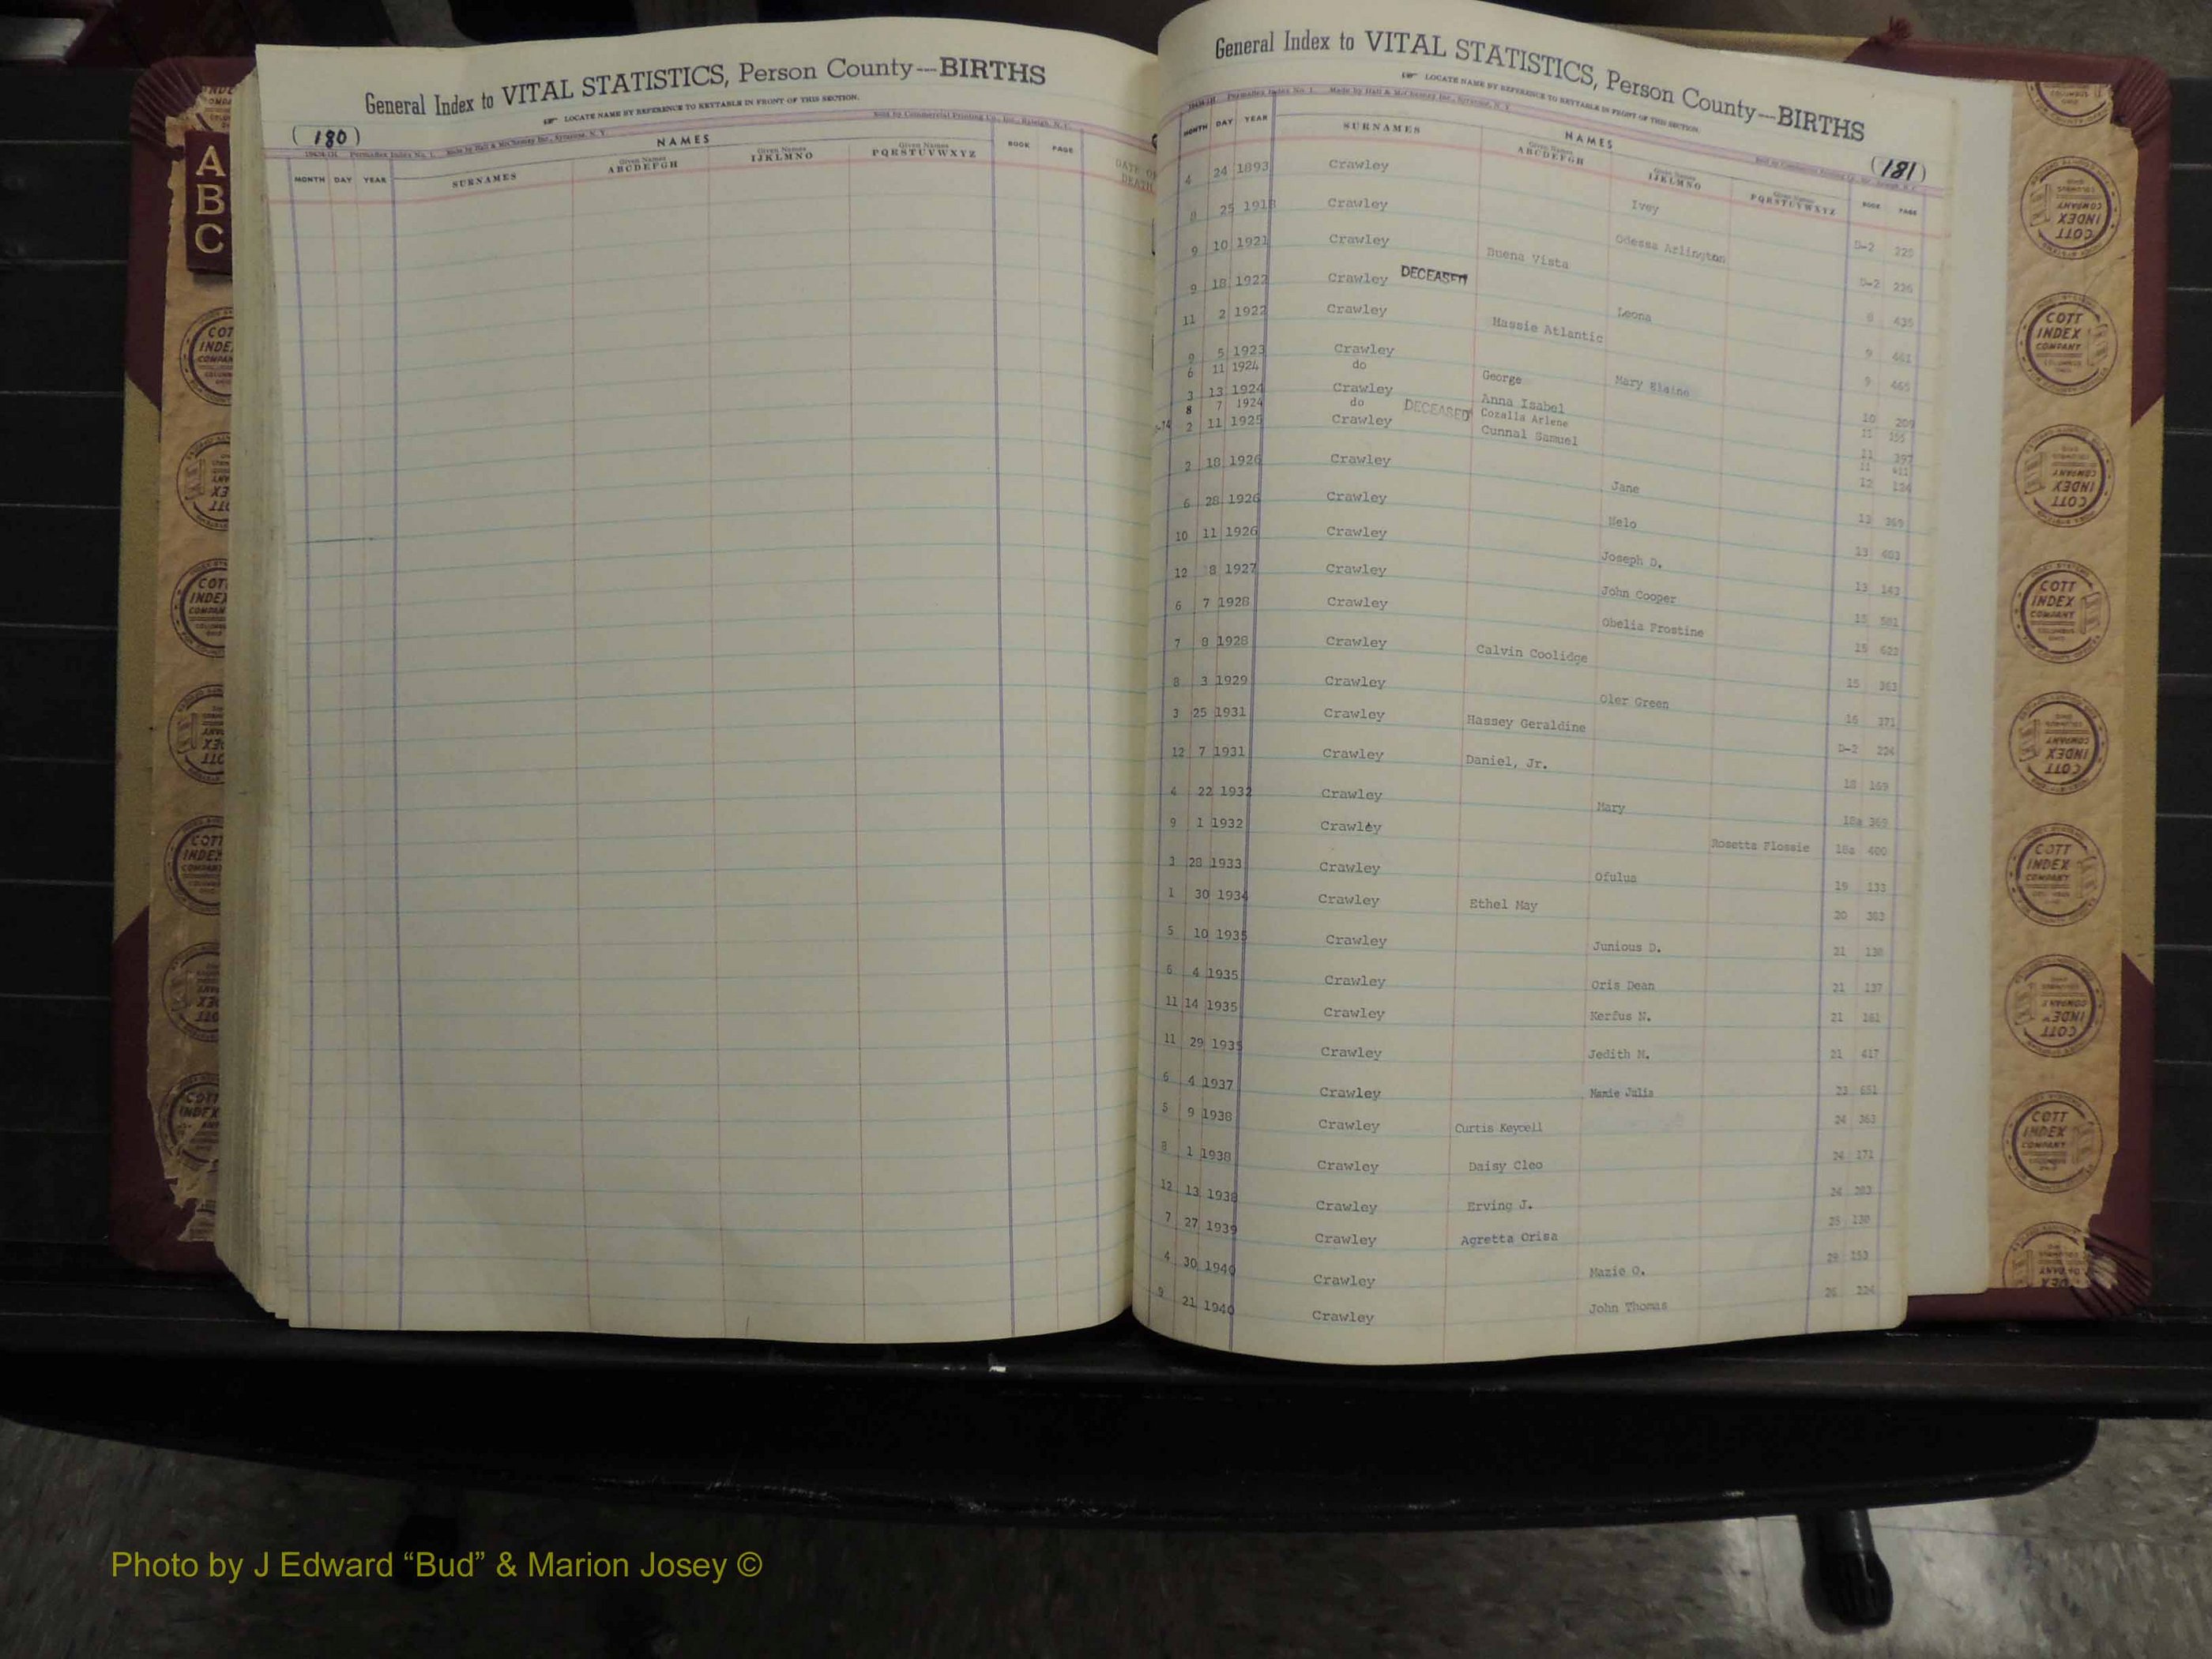 General Index to VITAL STATISTICS, Person County—BIRTHS
LOCATE NAME BY REFERENCE TO KEYTABLE IN FRONT OF THIS SECTION.
(180)
NAMES
MONTH DAY YEAR SURNAMES Given Names ABCDEFGH Given Names IJKLMNO Given Names PQRSTUVWXYZ BOOK PAGE
DATE OF DEATH
A
B
C
General Index to VITAL STATISTICS, Person County—BIRTHS
LOCATE NAME BY REFERENCE TO KEYTABLE IN FRONT OF THIS SECTION.
(181)
NAMES
MONTH DAY YEAR SURNAMES Given Names ABCDEFGH Given Names IJKLMNO Given Names PQRSTUVWXYZ BOOK PAGE
4 24 1893 Crawley Ivey D-2
8 25 1918 Crawley Odessa Arlington D-2 226
9 10 1921 Crawley Buena Vista 8 435
9 18 1922 Crawley DECEASED Leona 9 461
11 2 1922 Crawley Massie Atlantic 9 465
9 5 1923 Crawley George Mary Elaine 10 209
6 11 1924 do Anna Isabel 11
3 13 1924 Crawley Cozalla Arlene 11 397
8 7 1924 do DECEASED Cunnal Samuel 11 411
2 11 1925 Crawley Jane 12
2 18 1926 Crawley Nelo 13 369
6 28 1926 Crawley Joseph D. 13
10 11 1926 Crawley John Cooper 13 143
12 8 1927 Crawley Obelia Frostine 15
6 7 1928 Crawley Calvin Coolidge 15 623
7 8 1928 Crawley 15 363
8 3 1929 Crawley Oler Green 16 371
3 25 1931 Crawley Hassey Geraldine D-2 224
12 7 1931 Crawley Daniel, Jr. 18 169
4 22 1932 Crawley Mary 18a 369
9 1 1932 Crawley Rosetta Flossie 18a 400
3 28 1933 Crawley Ofulus 19 133
1 30 1934 Crawley Ethel May 20 383
5 10 1935 Crawley Junious D. 21 130
6 4 1935 Crawley Oris Dean 21 137
11 14 1935 Crawley Kerfus N. 21 161
11 29 1935 Crawley Jedith M. 21 417
6 4 1937 Crawley Mamie Julia 23 651
5 9 1938 Crawley Curtis Keycell 24 363
8 1 1938 Crawley Daisy Cleo 24 171
12 13 1938 Crawley Erving J. 24
7 27 1939 Crawley Agretta Orisa 25 120
4 30 1940 Crawley Mazie O. 153
9 21 1940 Crawley John Thomas 26 224
COTT INDEX COMPANY COLUMBUS OHIO
Photo by J Edward “Bud” & Marion Josey ©